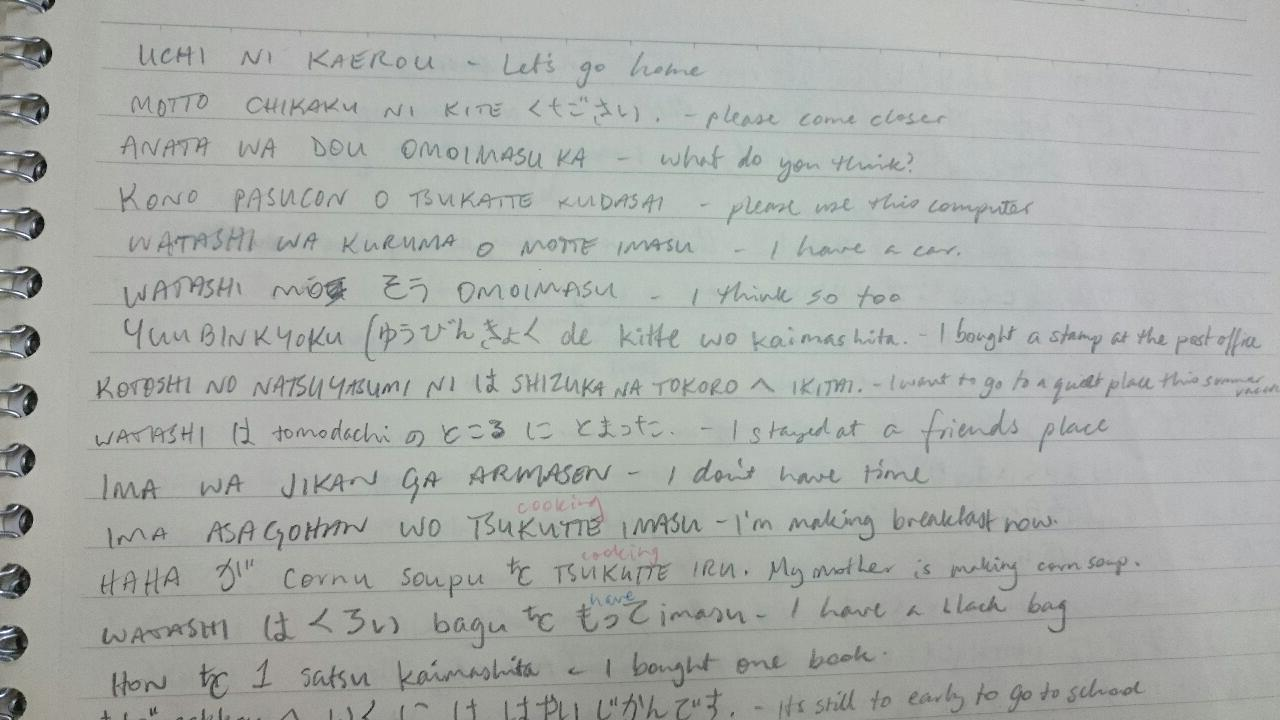 UCHI NI KAEROU - Let's go home
MOTTO CHIKAKU NI KITE ください. - please come closer
ANATA WA DOU OMOIMASU KA - what do you think?
KONO PASUCON O TSUKATTE KUDASAI - please use this computer
WATASHI WA KURUMA O MOTTE IMASU - I have a car.
WATASHI MO そう OMOIMASU - I think so too
YUUBINKYOKU (ゆうびんきょく de kitte wo kaimashita. - I bought a stamp at the post office
KOTOSHI NO NATSUYASUMI NI は SHIZUKA NA TOKORO へ IKITAI. - I want to go to a quiet place this summer
WATASHI は tomodachi の ところ に とまった. - I stayed at a friends place
IMA WA JIKAN GA ARMASEN - I don't have time
cooking
IMA ASAGOHAN WO TSUKUTTE IMASU - I'm making breakfast now.
cooking
HAHA が cornu soupu を TSUKUTTE IRU. My mother is making corn soup.
have
WATASHI は くろい bagu を もって imasu - I have a black bag
HON を 1 satsu kaimashita - I bought one book.
へ いくには はやい じかんです. - its still to early to go to school